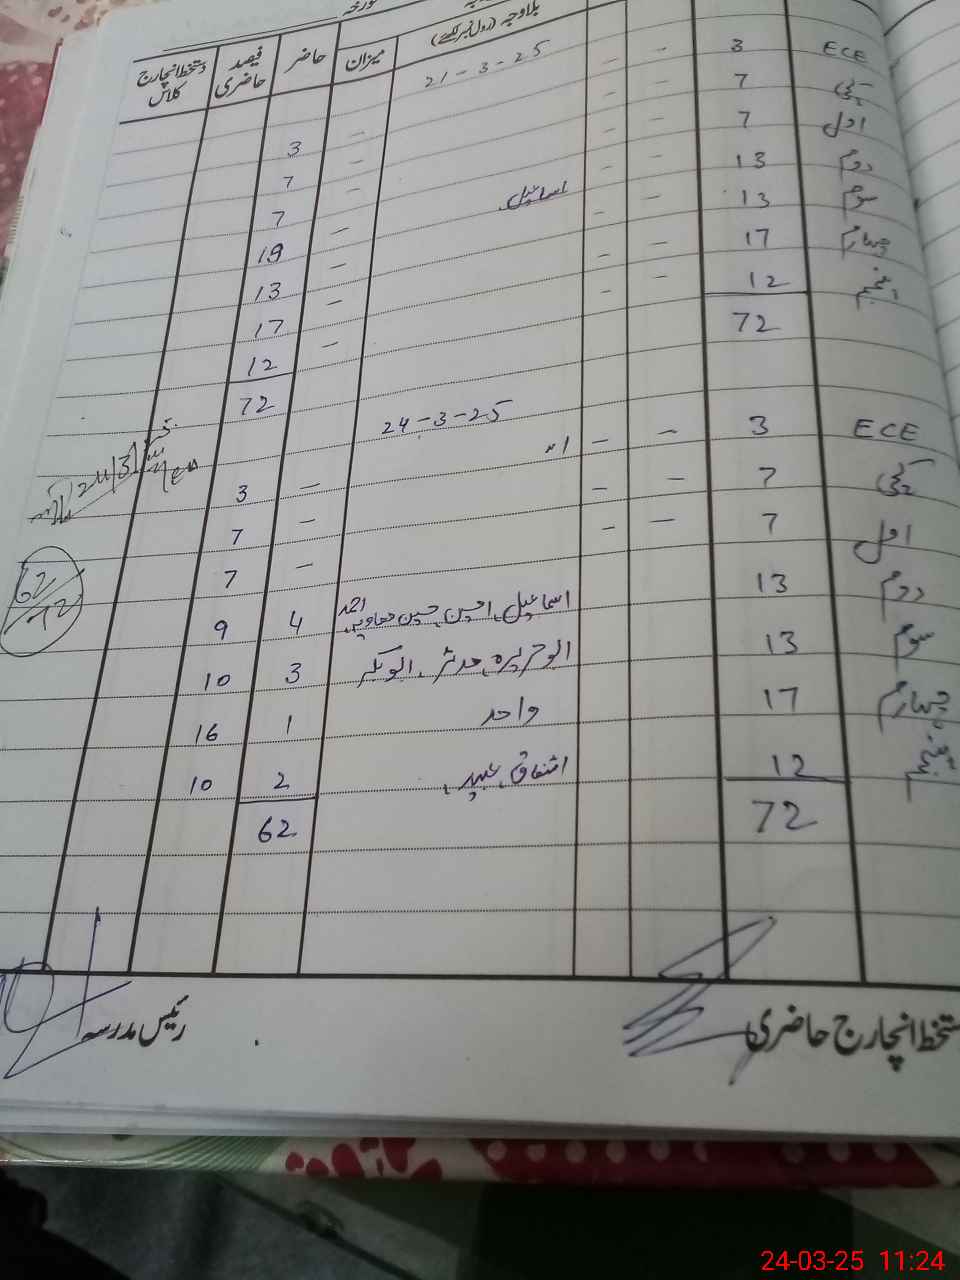 بلاوجہ (رول نمبر لکھیے) میزان حاضر فیصد حاضری دستخط انچارج کلاس
21-3-25
ECE 3 - - - 3
کچی 7 - - - 7
اول 7 - - - 7
دوم 13 - - اسماعیل - 19
سوم 13 - - - 13
چہارم 17 - - - 17
پنجم 12 - - - 12
72 72
24-3-25
ECE 3 - - - 3
کچی 7 - - - 7
اول 7 - - - 7
دوم 13 اسماعیل، احسن، حسین معاویہ، احمد 4 9
سوم 13 ابوہریرہ، مدثر، ابوبکر 3 10
چہارم 17 واحد 1 16
پنجم 12 اشفاق، عبید 2 10
72 62
62/72
دستخط انچارج حاضری رئیس مدرسہ
24-03-25 11:24